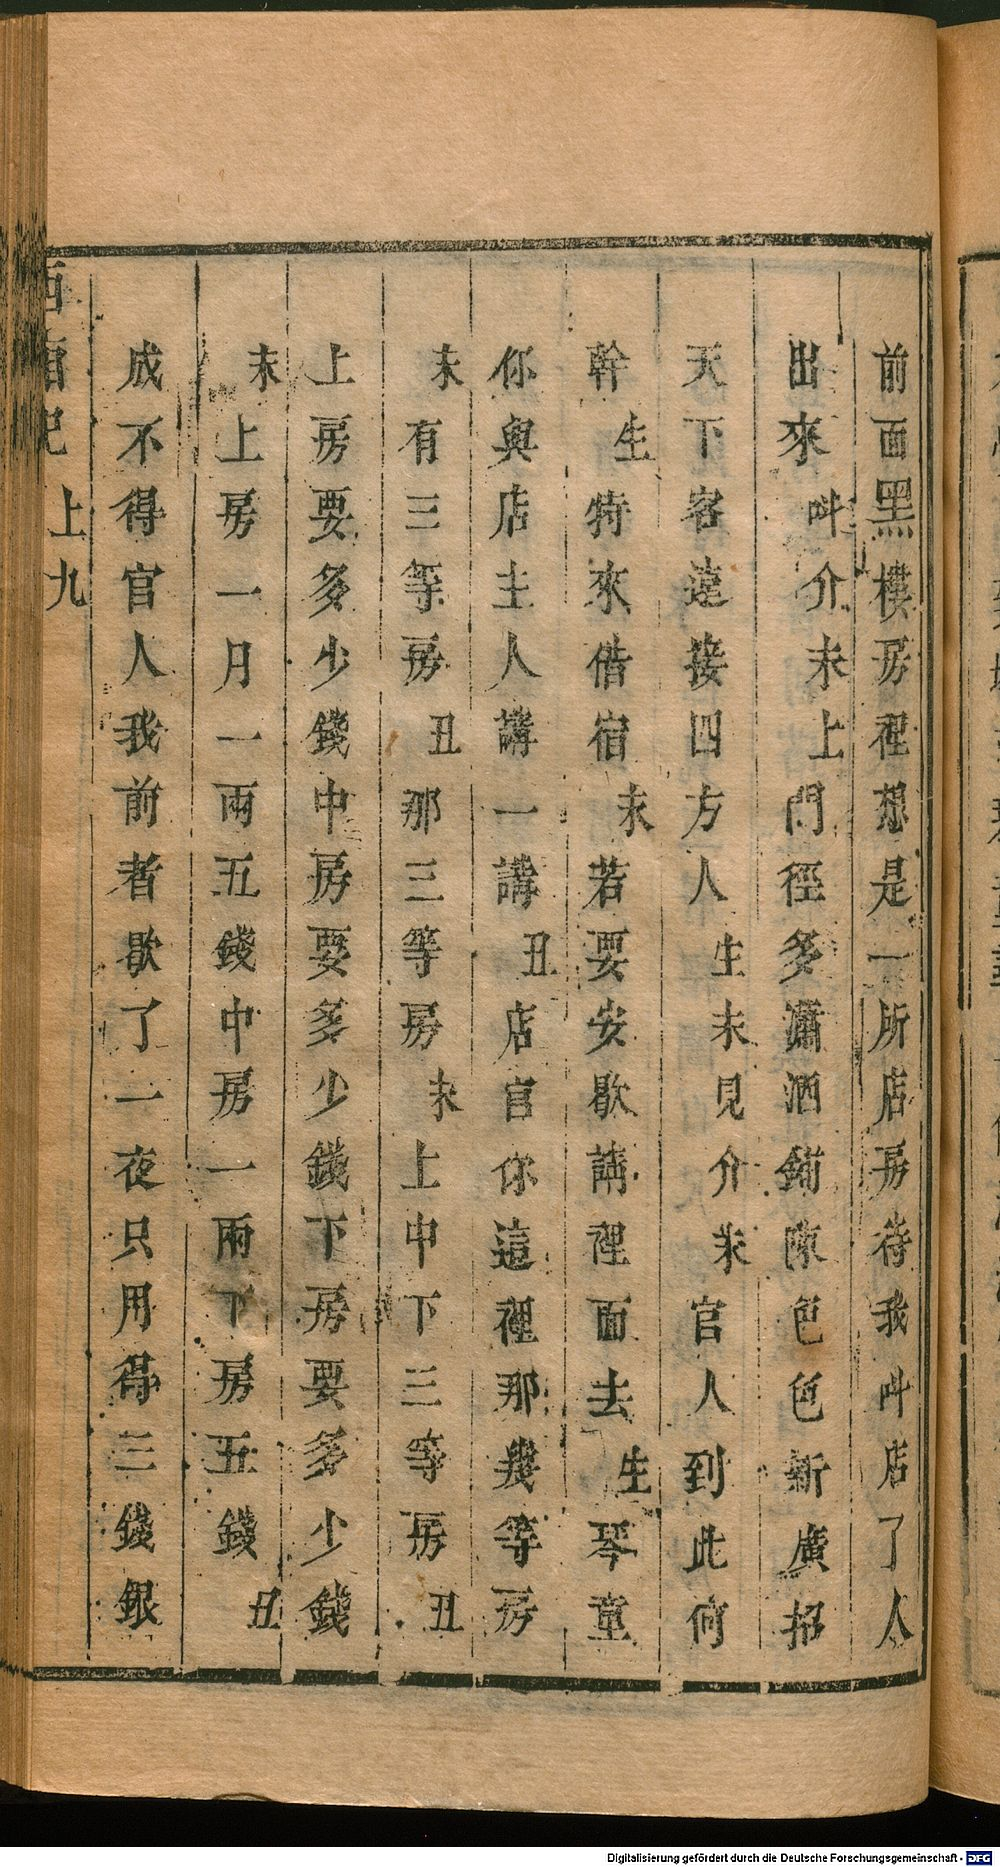 前面黑樓房裡想是一所店房待我叫店了人
出來叫介末上門徑多瀟洒鋪陳色色新廣招
天下客遠接四方人生末見介末官人到此何
幹生特來借宿末若要安歇請裡面去生琴童
你與店主人講一講丑店官你這裡那幾等房
末有三等房丑那三等房末上中下三等房丑
上房要多少錢中房要多少錢下房要多少錢
末上房一月一兩五錢中房一兩下房五錢丑
成不得官人我前者歇了一夜只用得三錢銀
西廂記 上九
Digitalisierung gefördert durch die Deutsche Forschungsgemeinschaft - DFG